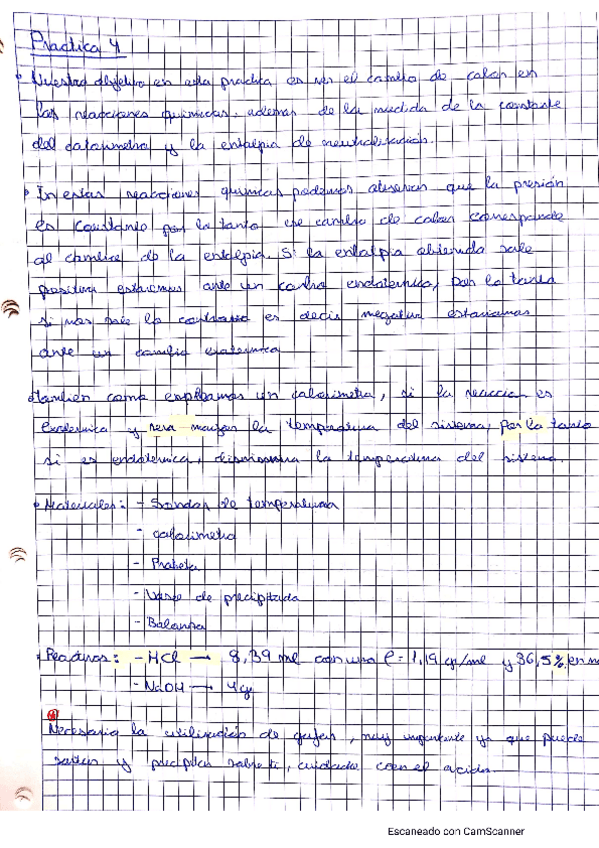 Practica 4
Nuestro objetivo en esta practica es ver el cambio de calor en
las reacciones quimicas, ademas de la medida de la constante
del calorimetro y la entalpia de neutralización.
En estas reacciones quimicas podemos observar que la presión
es constante por lo tanto ese cambio de calor corresponde
al cambio de la entalpia. Si la entalpia obtenida sale
positiva estariamos ante un cambio endotermico, por lo tanto
si nos sale lo contrario es decir negativa estariamos
ante un cambio exotermico
tambien como empleamos un calorimetro, si la reaccion es
Exotermica y sera mayor la temperatura del sistema, por lo tanto
si es endotermica, disminuira la temperatura del sistema.
Materiales: - Sondas de temperatura
- calorimetro
- Probeta
- Vaso de precipitado
- Balanza
Reactivos: - HCl → 8,39 ml con una ρ = 1,19 g/ml y 36,5% en
- NaOH → 4g
Necesario la utilización de gafas, muy importante ya que puede
saltar y precipitar sobre ti, cuidado con el acido.
Escaneado con CamScanner